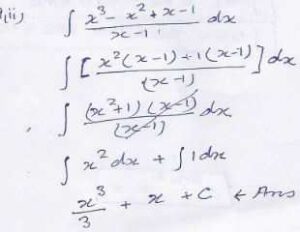 9,ii) ∫ x³ - x² + x - 1 / x - 1 dx
∫ [ x²(x-1) + 1(x-1) / (x-1) ] dx
∫ (x²+1)(x-1) / (x-1) dx
∫ x² dx + ∫ 1 dx
x³/3 + x + C ← Ans